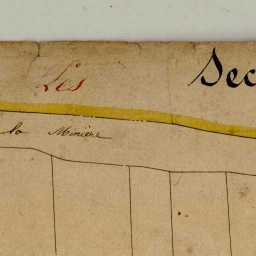 Les Sec
la Minière